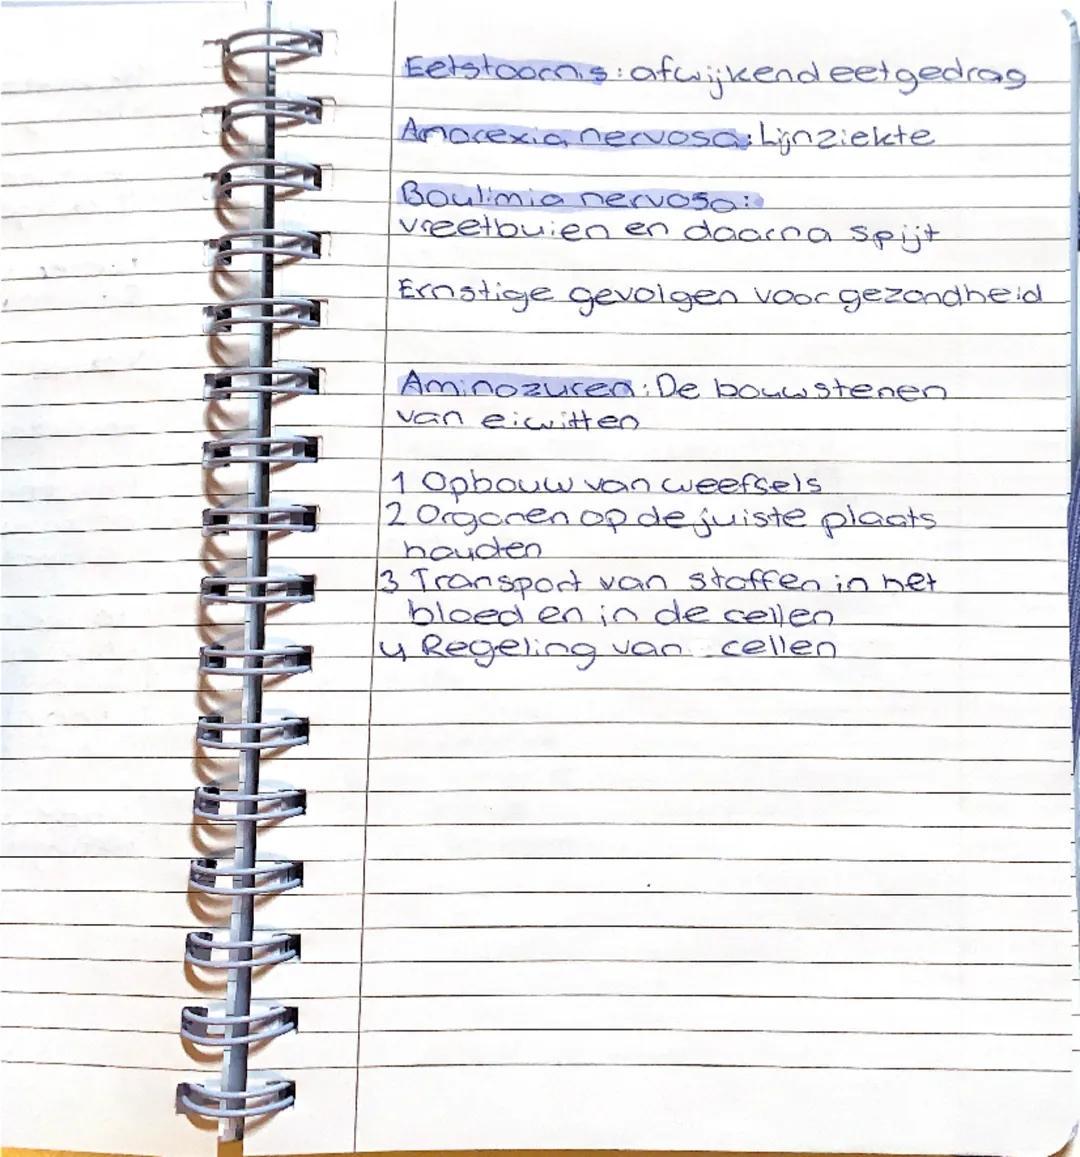 Eetstoornis: afwijkend eetgedrag
Anorexia nervosa: Lijnziekte
Boulimia nervosa:
vreetbuien en daarna spijt
Ernstige gevolgen voor gezondheid
Aminozuren: De bouwstenen
van eiwitten
1 Opbouw van weefsels
2 Organen op de juiste plaats
houden
3 Transport van stoffen in het
bloed en in de cellen
4 Regeling van cellen